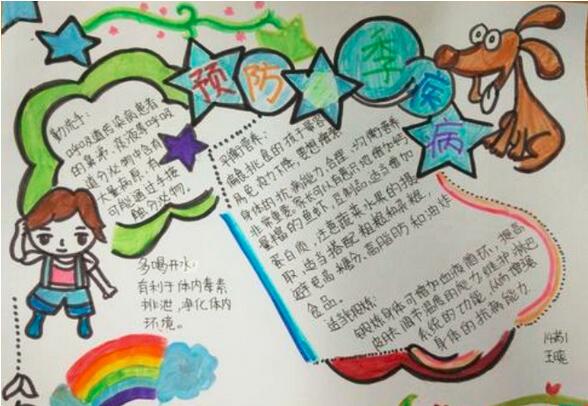 预防 季疾病
勤洗手:
呼吸道传染病患者
的鼻涕、痰液等呼吸
道分泌物中含有
大量病原,有
可能通过手接
触分泌物。
多喝开水:
有利于体内毒素
排泄,净化体内
环境。
均衡营养:
偏食挑食的孩子容易
免疫力下降,要想增强
身体的抗病能力,合理、均衡营养
非常重要。家长可以有意识地增加奶
量
的鱼虾,豆制品,适当增加
蛋白质,注意蔬菜水果的摄
取,适当搭配粗粮和杂粮,
避免高糖分、高脂肪和油炸
食品。
适当锻炼:
锻炼身体可增加血液循环,提高
皮肤调节温度的能力,维护淋巴
系统的功能,从而增强
身体的抗病能力